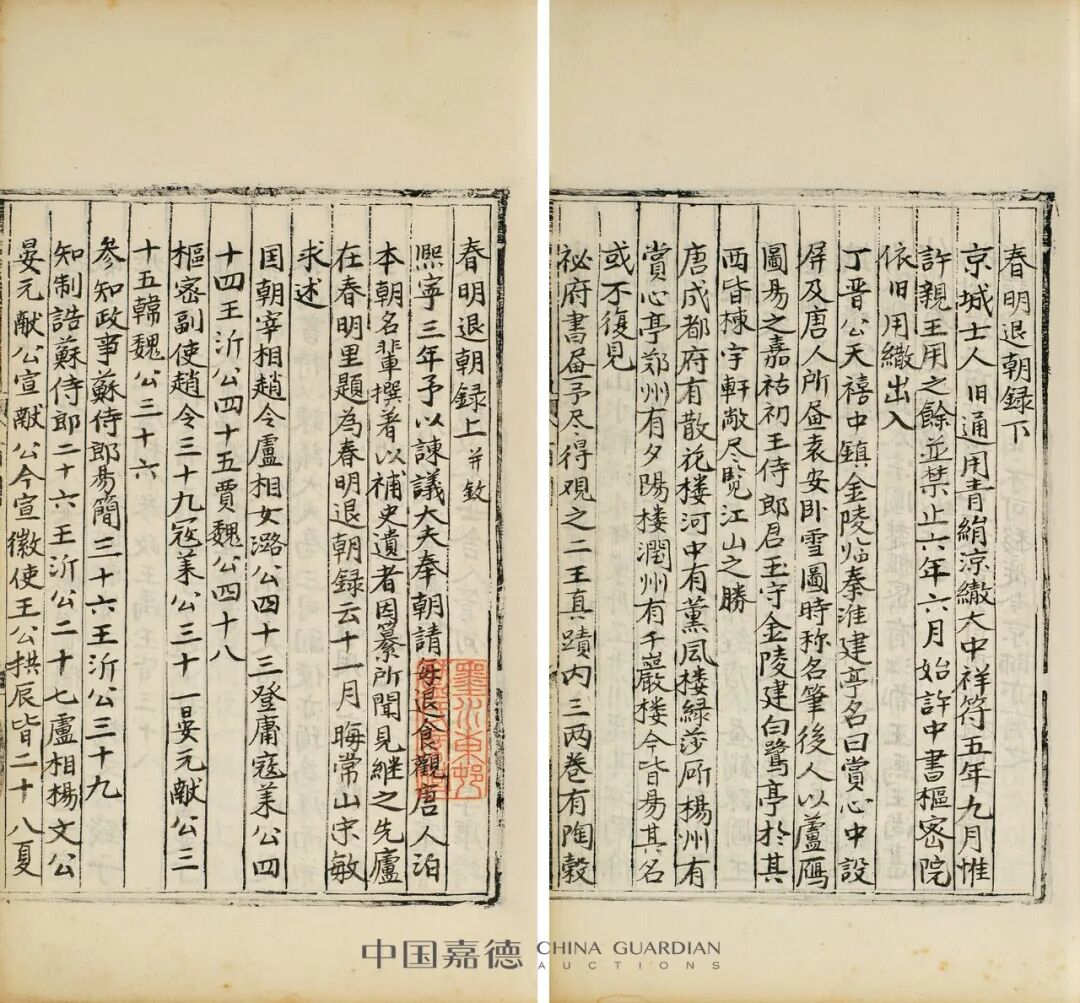 春明退朝録下
京城士人旧通用青絹涼繖大中祥符五年九月惟
許親王用之餘並禁止六年六月始許中書樞密院
依旧用繖出入
丁晋公天禧中鎮金陵临秦淮建亭名曰賞心中設
屏及唐人所𦘕袁安卧雪圖時称名筆後人以蘆鴈
圖易之嘉祐初王侍郎君玉守金陵建白鷺亭於其
西皆棟宇軒敞尽覧江山之勝
唐成都府有散花楼河中有薰風楼緑莎㕔揚州有
賞心亭郑州有夕陽楼潤州有千巖楼今皆易其名
或不復見
祕府書𦘕予尽得观之二王真蹟内三两巻有陶穀
春明退朝録上并敘
熈寧三年予以諫議大夫奉朝請每退食觀唐人洎
本朝名輩撰著以補史遺者因纂所聞見継之先廬
在春明里題為春明退朝録云十一月晦常山宋敏
求述
国朝宰相趙令盧相女潞公四十三登庸寇莱公四
十四王沂公四十五賈魏公四十八
樞密副使趙令三十九寇莱公三十一晏元献公三
十五韓魏公三十六
參知政事蘇侍郎易簡三十六王沂公三十九
知制誥蘇侍郎二十六王沂公二十七盧相楊文公
晏元献公宣献公今宣徽使王公拱辰皆二十八夏
中国嘉德 CHINA GUARDIAN
AUCTIONS